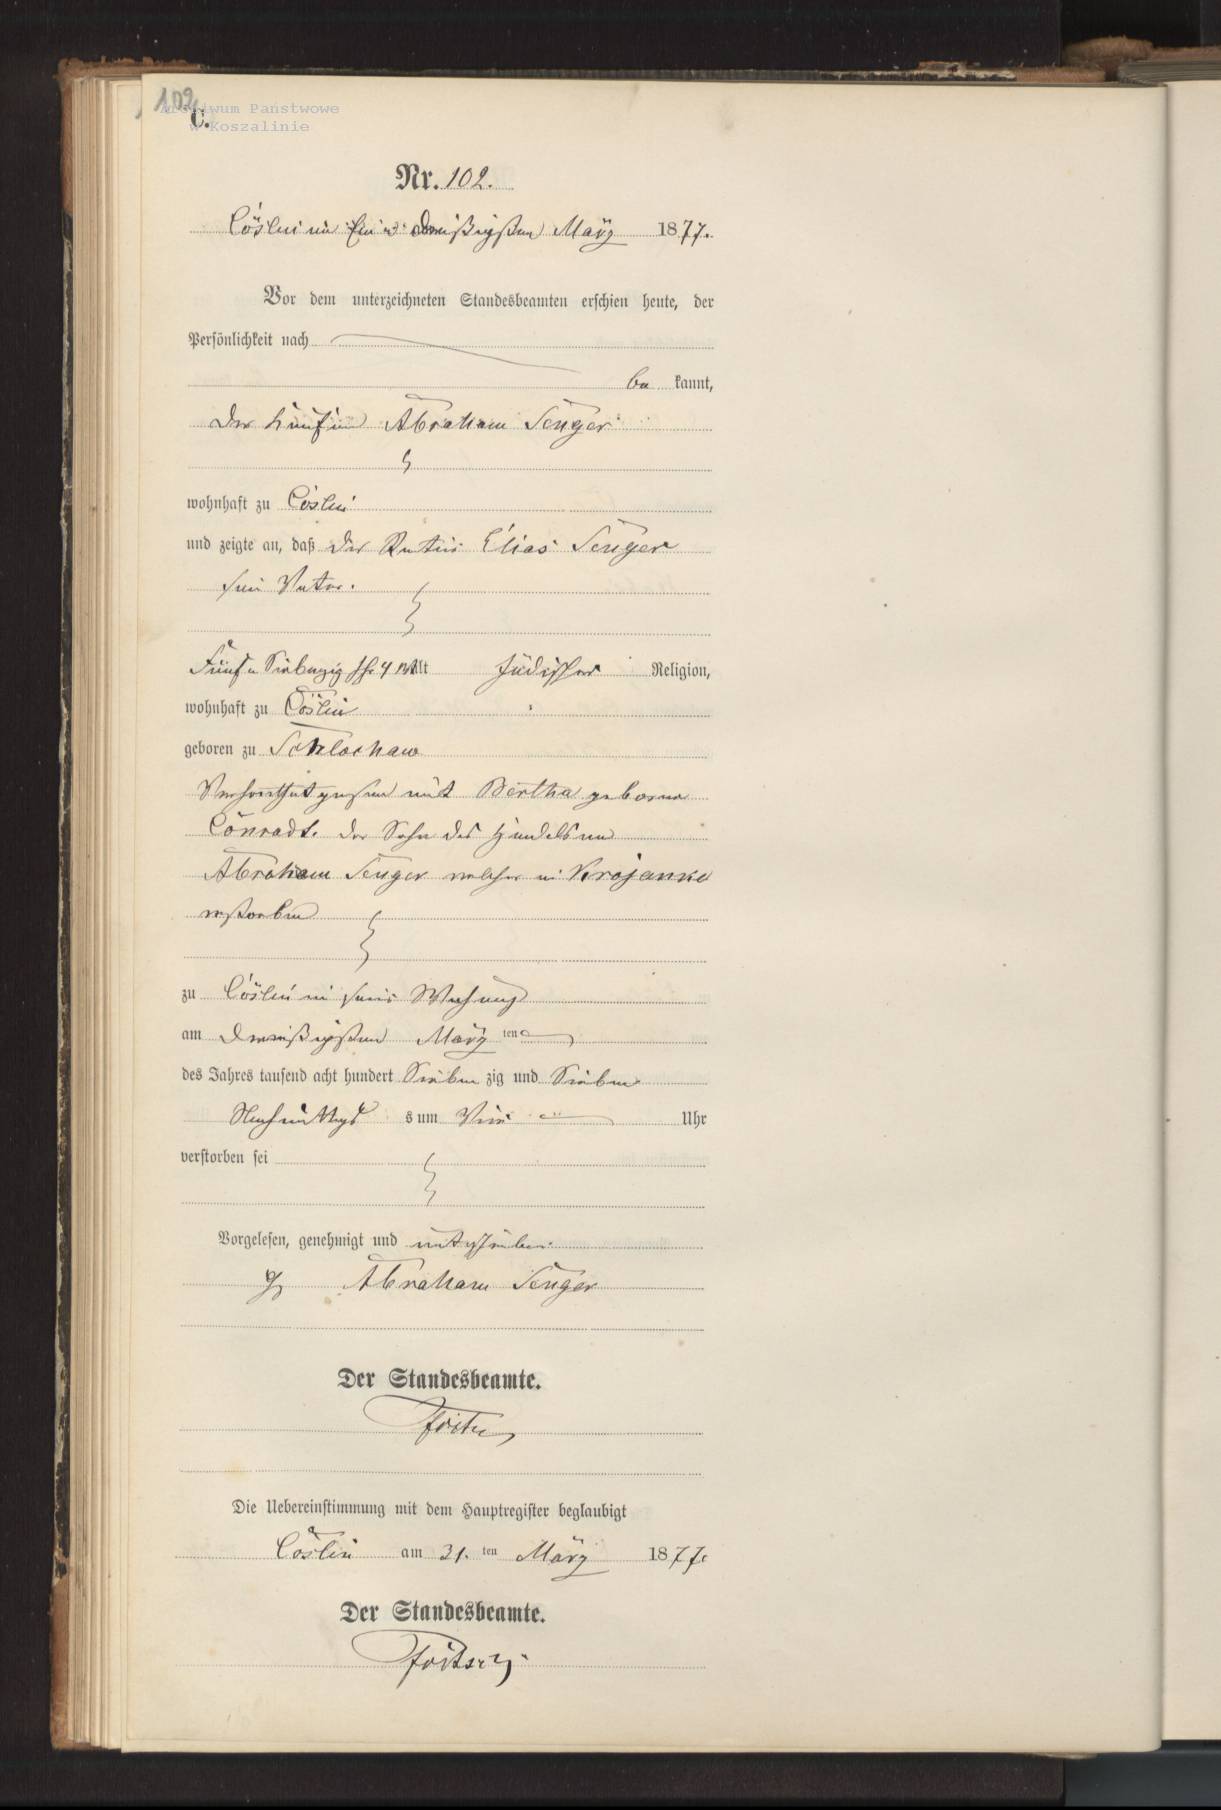 102.
Archiwum Państwowe
w Koszalinie
C.
Nr. 102.
Cöslin am Ein u. dreißigsten März 1877.
Vor dem unterzeichneten Standesbeamten erschien heute, der
Persönlichkeit nach
be kannt,
der Kaufmann Abraham Senger
wohnhaft zu Cöslin
und zeigte an, daß der Rentier Elias Senger
sein Vater.
Fünf u Siebenzig Jhr 4 M alt jüdischer Religion,
wohnhaft zu Cöslin
geboren zu Schlochau
Verheirathet gewesen mit Bertha geborene
Conradt. der Sohn des Handelsmann
Abraham Senger welcher in Krojanke
verstorben
zu Cöslin in seiner Wohnung
am dreißigsten März ten
des Jahres tausend acht hundert Sieben zig und Sieben
Nachmittags um Vier Uhr
verstorben sei
Vorgelesen, genehmigt und unterschrieben
gz Abraham Senger
Der Standesbeamte.
Die Uebereinstimmung mit dem Hauptregister beglaubigt
Cöslin am 31. ten März 1877.
Der Standesbeamte.